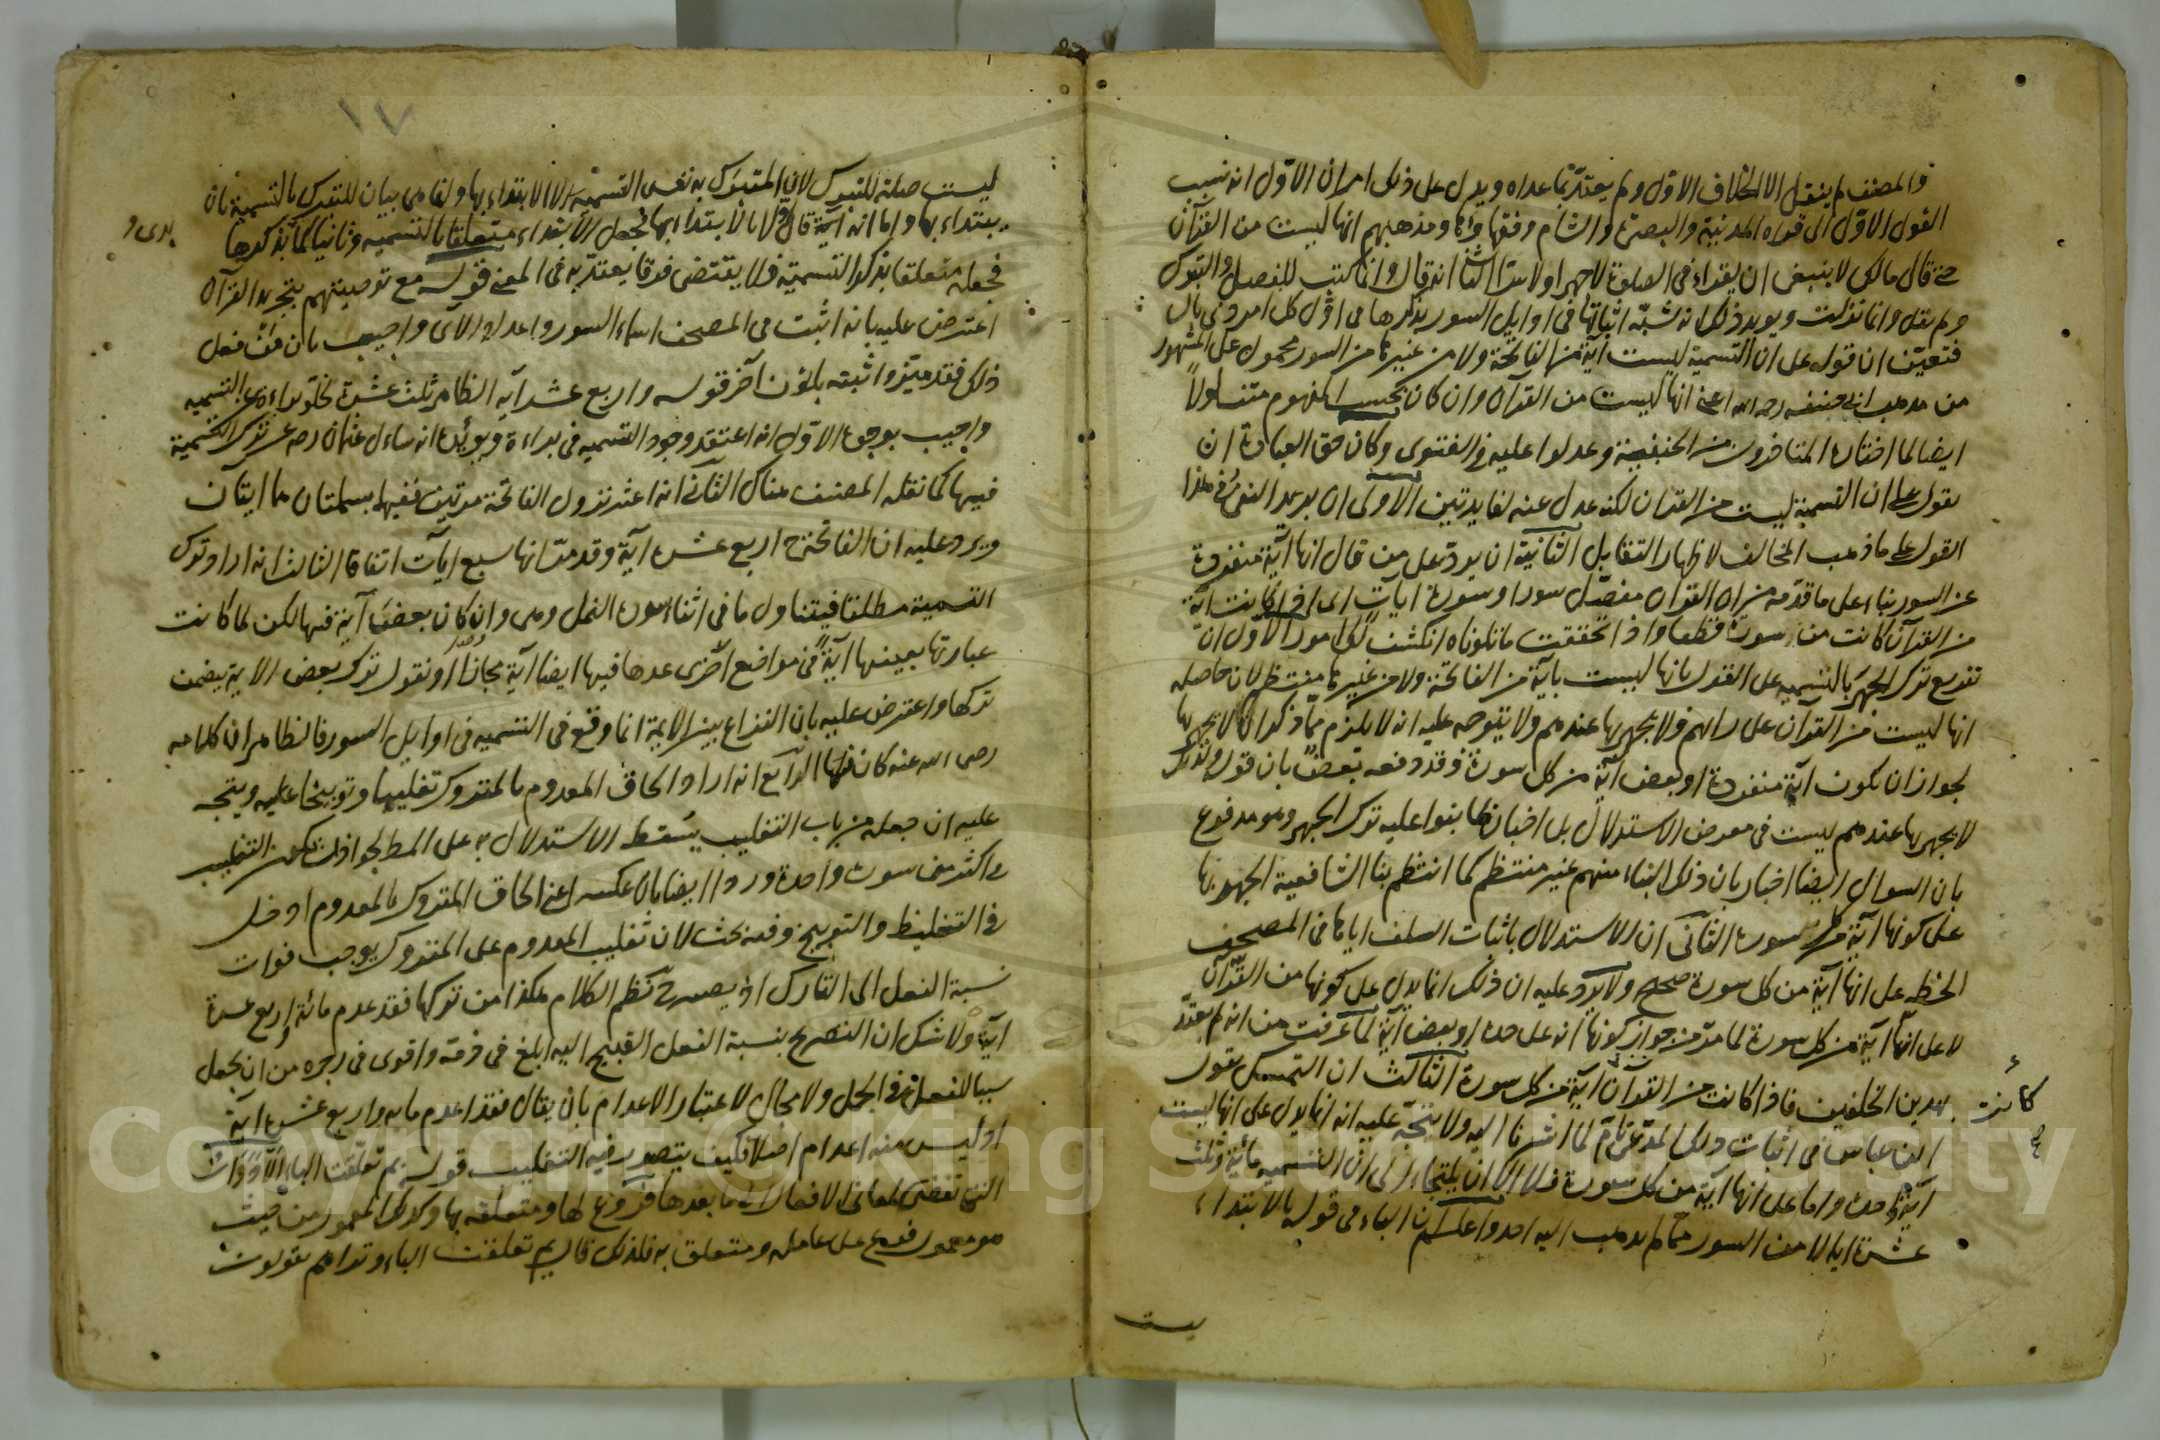 والمصنف لم ينقل الا الخلاف الاول ولم يعتد بما عداه ويدل على ذلك امران الاول انه نسب
القول الاول الى قراء المدينة والبصرة والشام وفقهائها ومذهبهم انها ليست من القرآن
قال مالك لا ينبغي ان يقراء في الصلوة لا جهرا ولا سرا الثانى انه قال وانما كتب للفصل والتبرك
ولم يقل وانما نزلت ويويد ذلك انه شبه اثباتها في اوايل السور بذكرها في اول كل امر ذي بال
فتعين ان قوله على ان التسمية ليست آية من الفاتحة ولا من غيرها من السور محمول على المشهور
من مذهب ابي حنيفه رحمه الله اعنى انها ليست من القرآن وان كان بحسب المفهوم متناولا
ايضا لما اختاره المتاخرون من الحنفية وعدلوا عليه في الفتوى وكان حق العبارة ان
يقول على ان التسمية ليست من القران لكنه عدل عنه لفايدتين الاولى ان يرد النفي في هذا
القول على ما ذهب المخالف لاظهار التقابل الثانية ان يرد على من قال انها آية منفردة
عن السور بناء على ما قدمه من ان القران مفصل سورا وسورة آيات اى كانت آية
من القرآن كانت من سورة قطعا واذا تحققت ما تلوناه انكشف لك امور الاول ان
تفريع ترك الجهر بالتسمية على القول بانها ليست بآية من الفاتحة ولا من غيرها منتظم لان حاصله
انها ليست من القرآن على رايهم ولا يجهر بها عندهم ولا يتوجه عليه انه لا يلزم مما ذكر ان لا يجهر بها
لجواز ان يكون آية منفردة او بعض آية من كل سورة وقد دفعه بعض بان قوله ولذلك
لا يجهر بها عندهم ليست في معرض الاستدلال بل اخبار بما بنوا عليه ترك الجهر وهو مدفوع
بان السوال ايضا اخبار بان ذلك البناء منهم غير منتظم كما انتظم بنا الشافعية الجهر بها
على كونها آية من كل سورة الثانى ان الاستدلال باثبات السلف اياها في المصحف
الخطه على انها آية من كل سورة صحيح ولا يرد عليه ان ذلك انما يدل على كونها من القرآن
لا على انها آية من كل سورة لما مر من جواز كونها آية على حدة او بعض آية لما عرفت من انه لم يعتد
بهذين الخلفين فاذا كانت من القرآن كانت آية من كل سورة الثالث ان التمسك بقول
ابن عباس في اثبات ذلك المدعى تام لما اشرنا اليه ولا يتجه عليه انه انما يدل على انها ليست
آية واحدة واما على انها آية من كل سورة فلا الا ان يلتجاء الى ان التسمية مائة وثلث
عشرة اية لا من السور مما لم يذهب اليه احد واعلم ان الباء في قوله بالابتداء
ليست
١٧
ليست صلة للتبرك لان المتبرك به نفس التسمية لا الابتداء بها وانما هي بيان للتبرك بالتسمية بان
يبتداء بها واما انه قال اولا بالابتداء بها فجعل الابتداء متعلقا بالتسمية وثانيا كما بذكرها
فجعله متعلقا بذكر التسمية فلا يقتضى فرقا يعتد به في المعنى قوله مع توصيتهم بتجريد القرآن
اعترض عليه بانه اثبت في المصحف اسماء السور واعداد الآي واجيب بان من فعل
ذلك فقد ميزه واثبته بلون آخر قوله واربع عشر آية الظاهر ثلث عشرة لخلو براءة عن التسمية
واجيب بوجوه الاول انه اعتقد وجود التسمية في براءة ويويده انه سأل عثمان رضه عن ترك التسمية
فيها كما نقله المصنف هناك الثانى انه اعتبر نزول الفاتحة مرتين ففيها بسملتان هما ايتان
ويرد عليه ان الفاتحة ح اربع عشرة آية وقد مر انها سبع آيات اتفاقا الثالث انه اراد ترك
التسمية مطلقا فيتناول ما في اثناء سورة النمل وهي وان كان بعض آية فيها لكن لما كانت
عبارتها بعينها آية في مواضع اخرى عدها فيها ايضا آية مجازا او نقول ترك بعض الاية يتضمن
تركها واعترض عليه بان النزاع بين الايمة انما وقع في التسمية في اوايل السور فالظاهر ان كلامه
رضى الله عنه كان فيها الرابع انه اراد الحاق المعدوم بالمتروك تغليبا وتوبيخا عليه ويتجه
عليه ان جعله من باب التغليب يسقط الاستدلال به على المط لجواز ان يكون التغليب
في اكثر من سورة واحدة ورد ايضا بان عكسه اعنى الحاق المتروك بالمعدوم ادخل
في التغليظ والتوبيخ وفيه بحث لان تغليب المعدوم على المتروك يوجب فوات
نسبة الفعل الى التارك اذ يصير ح نظم الكلام هكذا من تركها فقد عدم مائة واربع عشرة
آية ولا شك ان التصريح بنسبة الفعل القبيح اليه ابلغ في ذمه واقوى في زجره من ان يجعل
سببا للفعل في الجملة ولا مجال لاعتبار الاعدام بان يقال فقد اعدم مايه واربع عشرة آية
اذ ليس منه اعدام اصلا فكيف يتصور فيه التغليب قوله بم تعلقت الباء الادوات
التى تفضى لمعانى الافعال الى ما بعدها فروع لها ومتعلقه بها وكذلك المعمول من حيث
هو معمول فرع على عامله ومتعلق به فلذلك قال بم تعلقت الباء وتراهم يقولون
كانت
صح